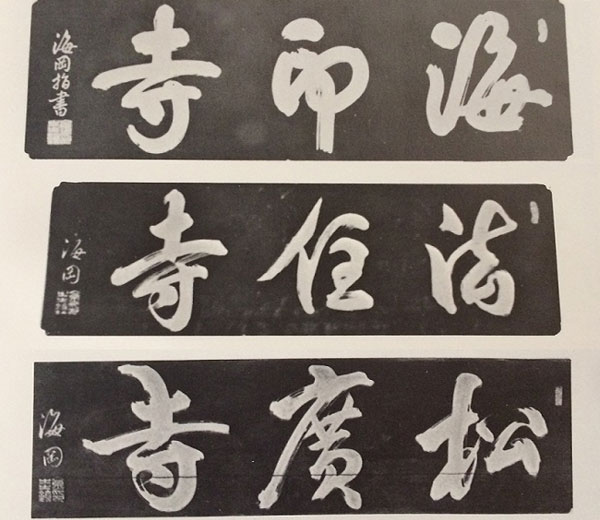 海印寺
海岡指書
法住寺
海岡
松廣寺
海岡